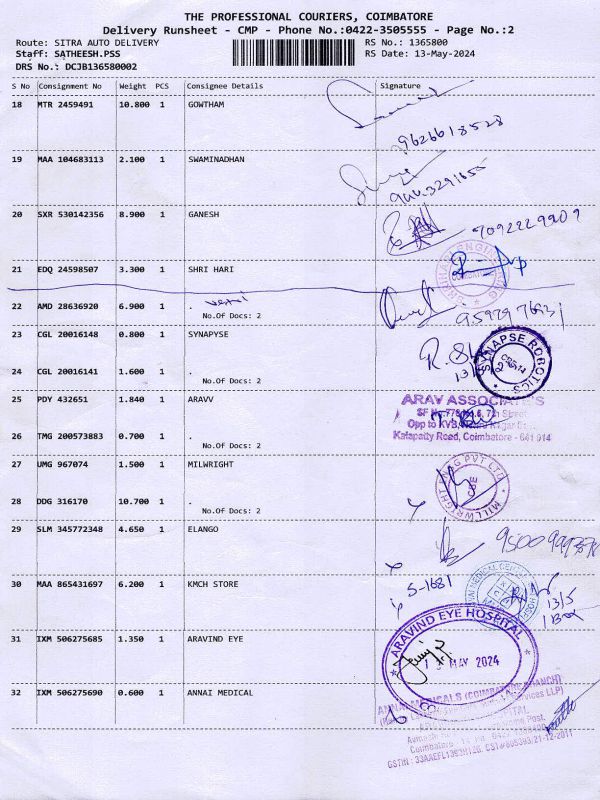 THE PROFESSIONAL COURIERS, COIMBATORE
Delivery Runsheet - CMP - Phone No.:0422-3505555 - Page No.:2
Route: SITRA AUTO DELIVERY
RS No.: 1365800
Staff: SATHEESH.PSS
RS Date: 13-May-2024
DRS No.: DCJB136580002
S No Consignment No Weight PCS Consignee Details Signature
18 MTR 2459491 10.800 1 GOWTHAM
9626618528
19 MAA 104683113 2.100 1 SWAMINADHAN
20 SXR 530142356 8.900 1 GANESH
7092229909
21 EDQ 24598507 3.300 1 SHRI HARI
22 AMD 28636920 6.900 1 .
No.Of Docs: 2
23 CGL 20016148 0.800 1 SYNAPYSE
SYNAPSE ROBOTICS
24 CGL 20016141 1.600 1 .
No.Of Docs: 2
25 PDY 432651 1.840 1 ARAVV
ARAV ASSOCIATES
Opp to KVB,
Kalapatty Road, Coimbatore - 641 014
26 TMG 200573883 0.700 1 .
No.Of Docs: 2
27 UMG 967074 1.500 1 MILWRIGHT
PVT LTD
CBE
28 DDG 316170 10.700 1 .
No.Of Docs: 2
29 SLM 345772348 4.650 1 ELANGO
30 MAA 865431697 6.200 1 KMCH STORE
S-1681
13/5
1 Box
31 IXM 506275685 1.350 1 ARAVIND EYE
ARAVIND EYE HOSPITAL
MAY 2024
32 IXM 506275690 0.600 1 ANNAI MEDICAL
ANNAI MEDICALS (COIMBATORE BRANCH)